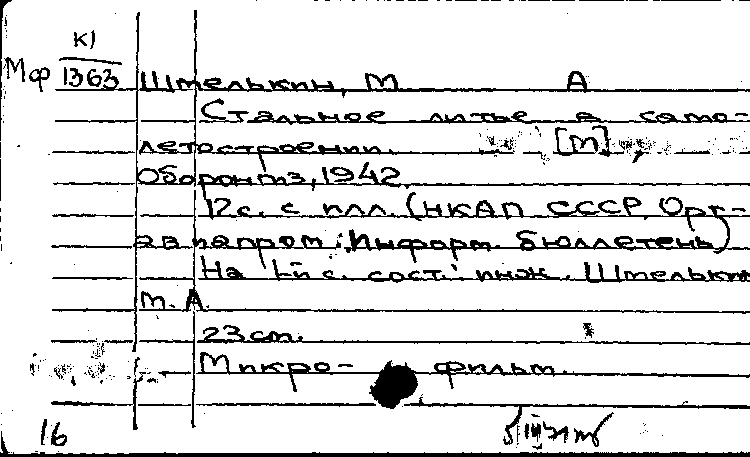 К1
Мф 1363 Штелькин, М А
Стальное литье в само-
летостроении. [М],
Оборонгиз, 1942.
12с. с илл. (НКАП СССР, Орг-
авиапром: Информ. бюллетень)
На 1-й с. сост.: инж. Штелькин
М. А.
23 см.
Микро- фильм.
16